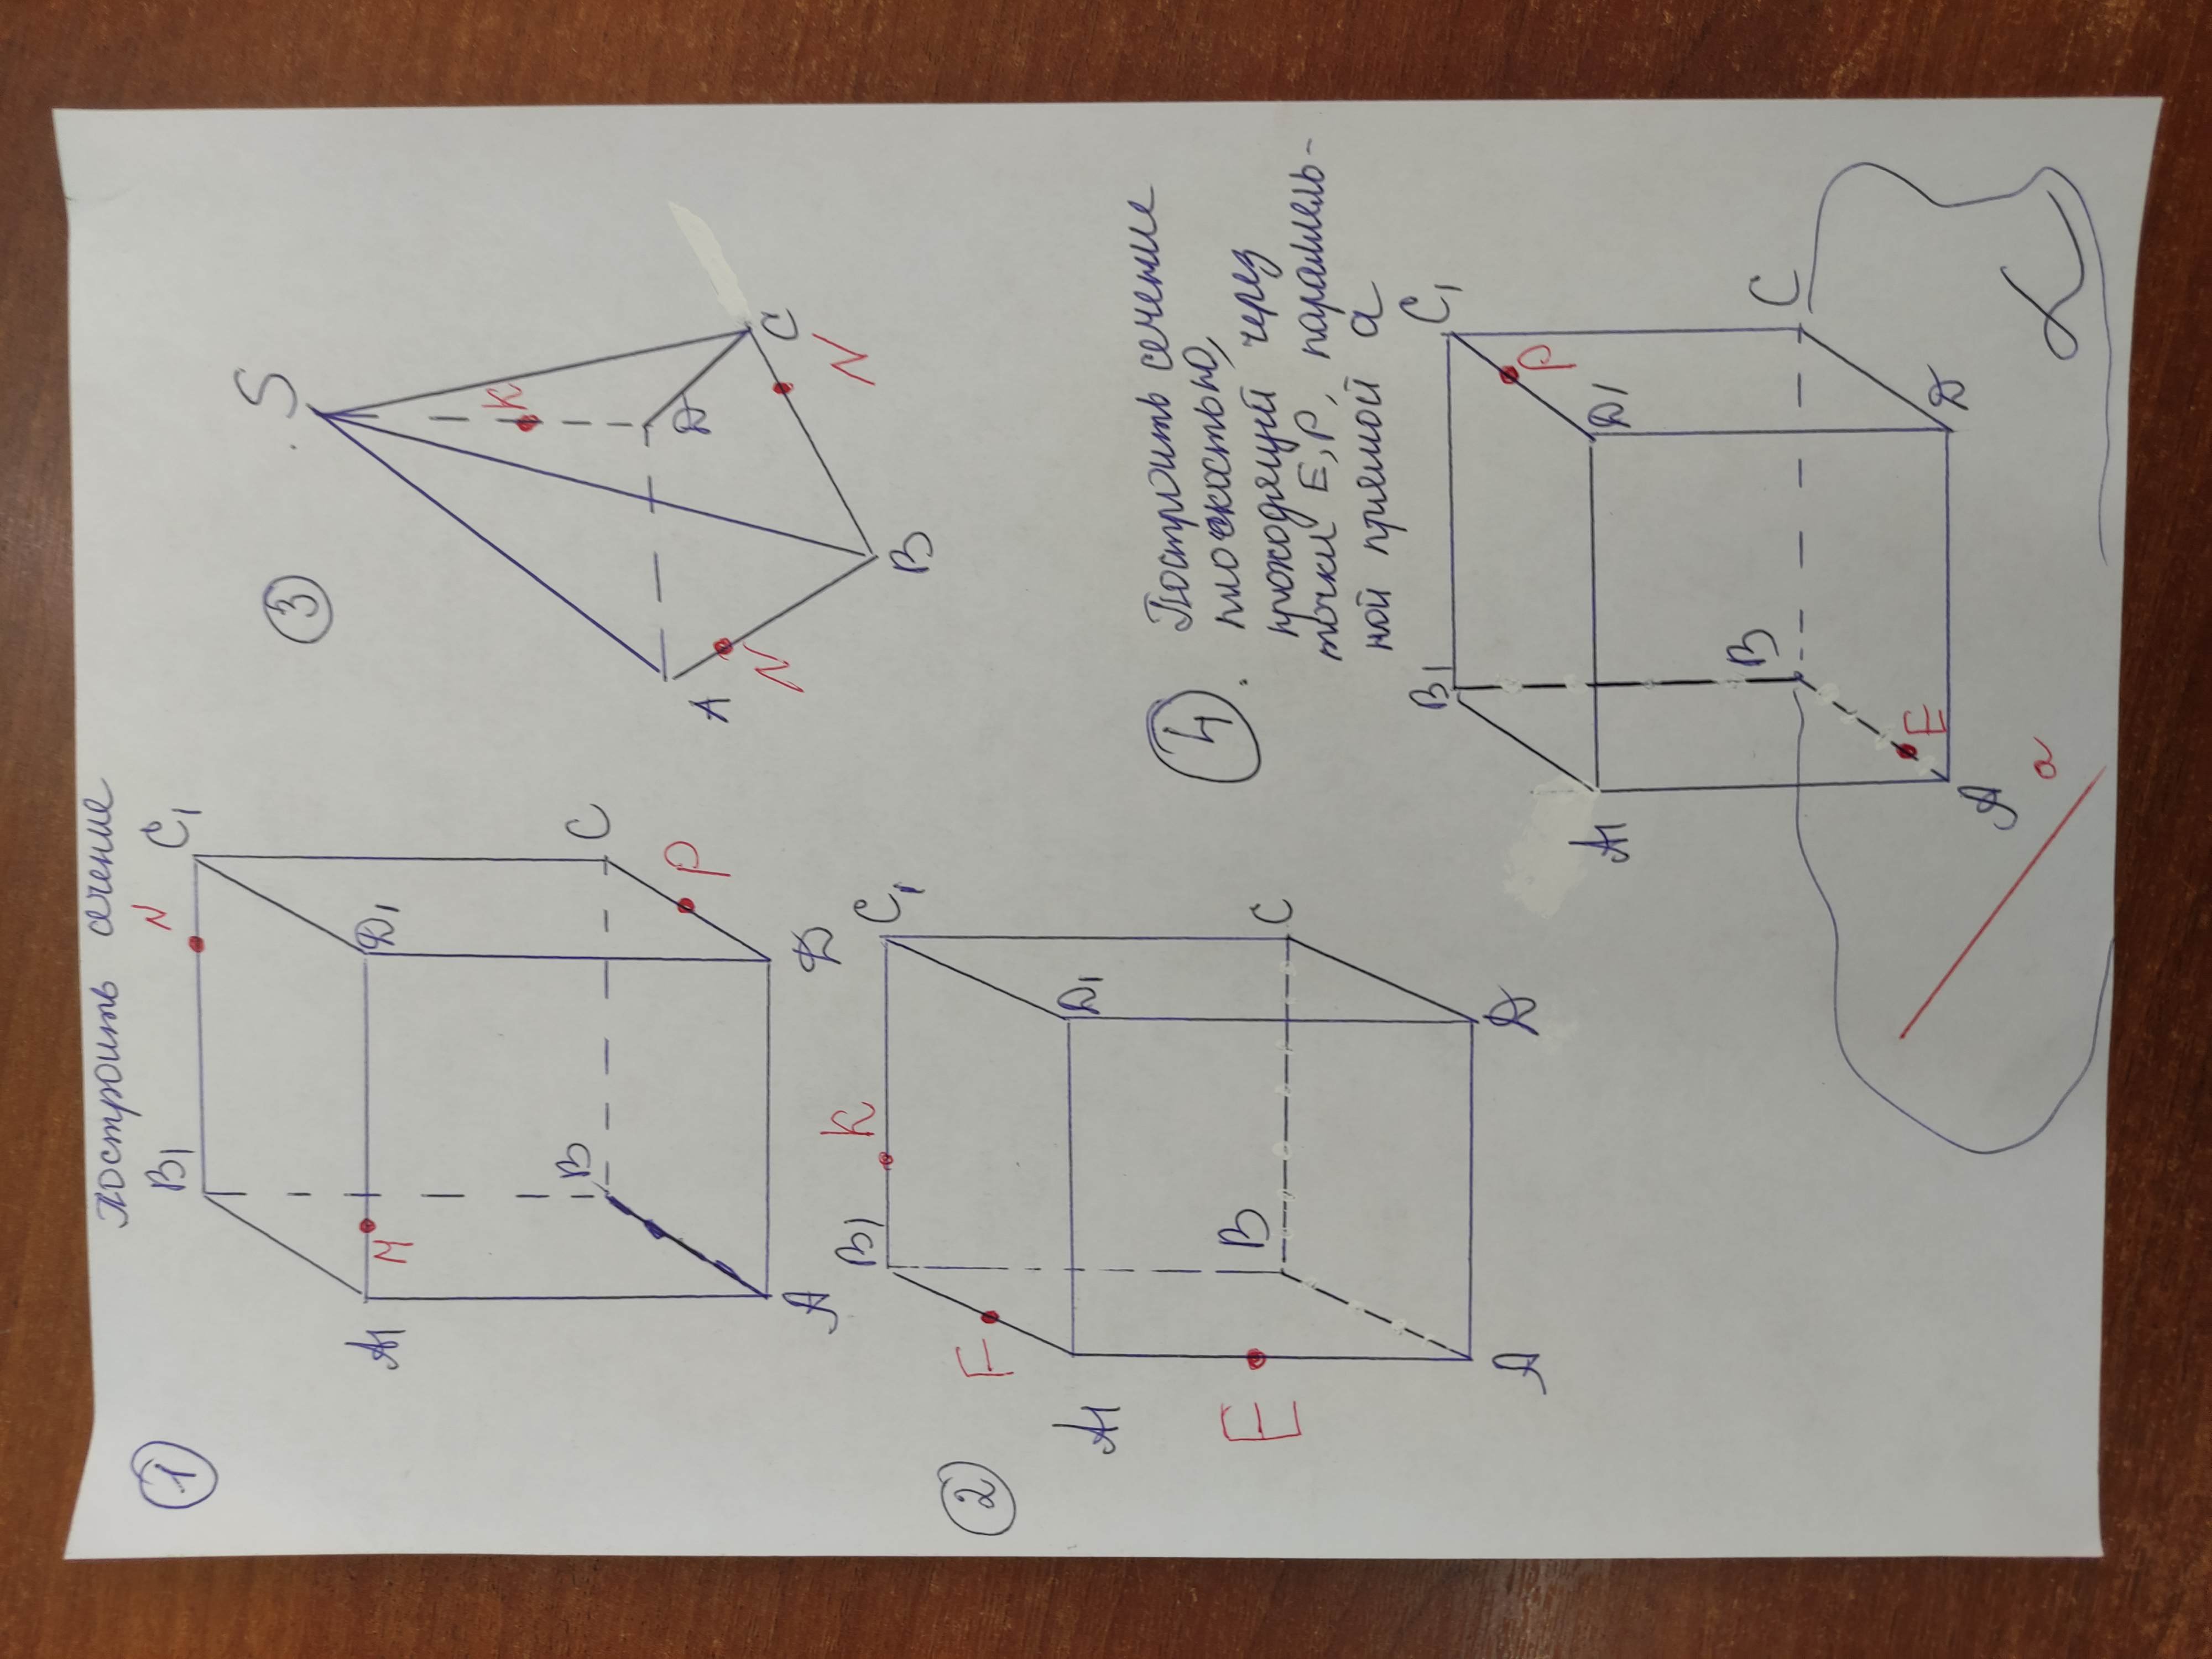 Построить сечение
①
B1
N
C1
A1
M
D1
B
C
P
A
D
②
B1
K
C1
F
A1
D1
E
B
C
A
D
③
S
K
A
D
C
N
N
B
④.
Построить сечение
плоскостью,
проходящей через
точки E, P, параллель-
ной прямой a
B1
C1
P
A1
D1
B
C
E
A
D
a
α